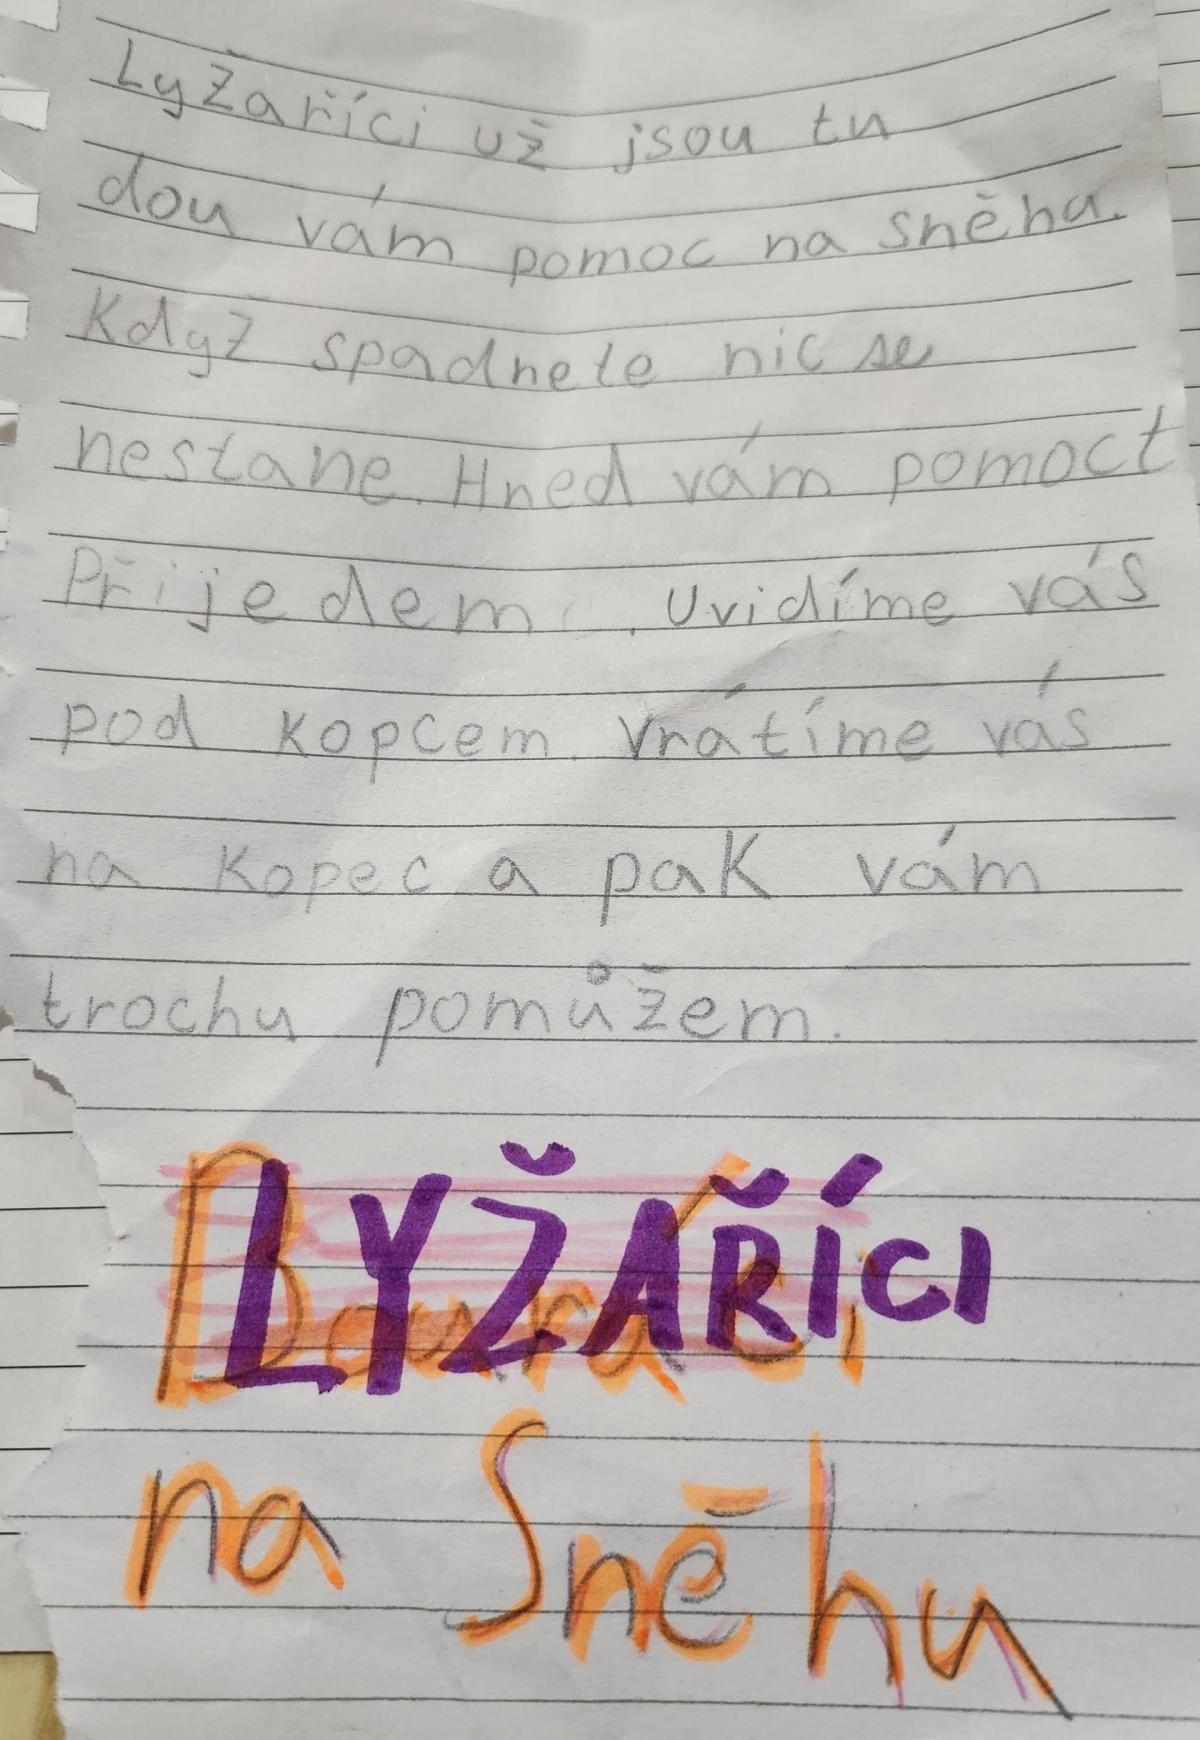 Lyžaříci už jsou tu
dou vám pomoc na sněhu.
Když spadnete nic se
nestane. Hned vám pomoct
Přijedem . Uvidíme vás
pod kopcem. Vrátíme vás
na kopec a pak vám
trochu pomůžem.
LYŽAŘÍCI
na Sněhu